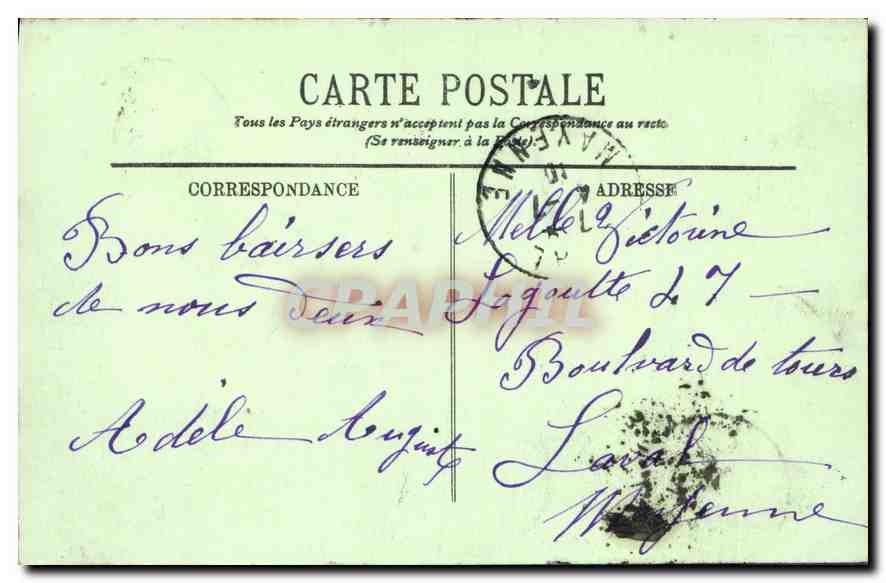 CARTE POSTALE
Tous les Pays étrangers n'acceptent pas la Correspondance au recto
(Se renseigner à la Poste)
CORRESPONDANCE
Bons bairsers
de nous deux
Adèle August
ADRESSE
Melle Victorine
Lagoutte 47
Boulvard de tours
Laval
Mayenne
MAYENNE
CPAPHIL